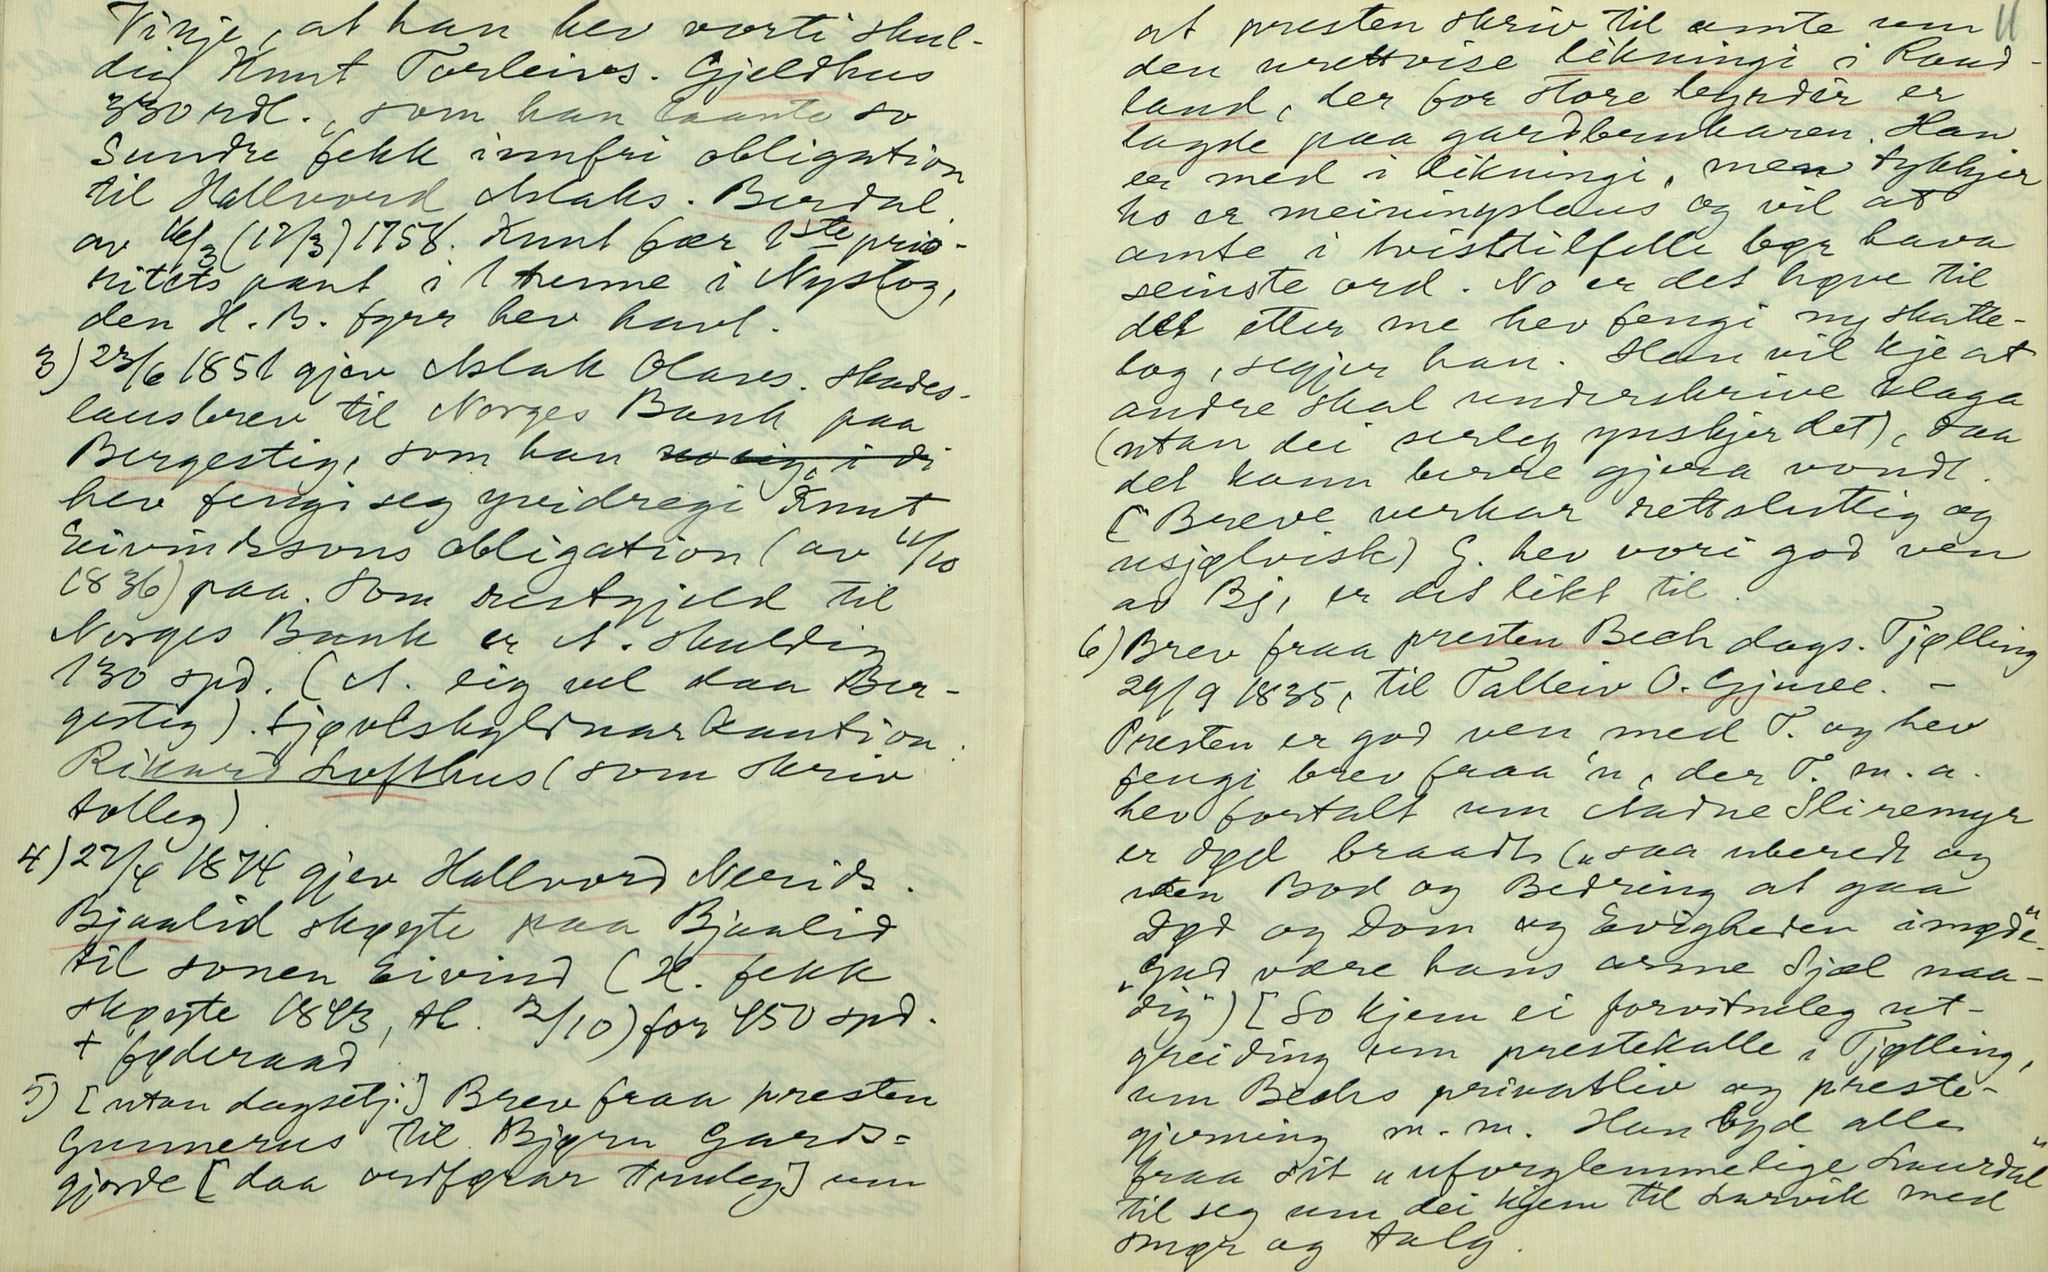 Vinje, at han hev vorti skul-
dig Knut Torleivs. Gjeldhus
330 rdl., som han laante so
Sundre fekk innfri obligation
til Hallvord Aslaks. Berdal
av 16/3 (17/3) 1758. Knut fær 1ste prio-
ritets pant i 1 tunne i Nystog,
den H. B. fyrr hev havt.
3) 23/6 1851 gjev Aslak Olavs. skades-
lausbrev til Norges Bank paa
Bergestig, som han
hev fengi seg yvidregi Knut
Eivindssons obligation (av 11/10
1836) paa. Som restgjeld til
Norges Bank er A. skuldig
130 spd. (A. eig vel daa Ber-
gestig). Sjølvskyldnarkaution:
Rikard Lofthus (som skriv
tolleg).
4) 27/4 1874 gjev Hallvord Neerids.
Bjaalid skøyte paa Bjaalid
til sonen Eivind (H. fekk
skøyte 1843, tl. 2/10) for 450 spd.
+ føderaad
5) [utan dagsetj.] Brev fraa presten
Gunnerus til Bjørn Gards-
gjorde [daa ordførar truleg] um
11
at presten skriv til amte um
den urettvise likningi i Raud-
land, der for store byrder er
lagde paa gardbrukaren. Han
er med i likningi, men tykkjer
ho er meiningslaus og vil at
amte i tvisttilfelle bør hava
seinste ord. No er det høve til
det etter me hev fengi ny skatte-
log, segjer han. Han vil kje at
andre skal underskrive klaga
(utan dei serleg ynskjer det), daa
det kann berre gjera vondt.
[Breve verkar rettsluttig og
usjølvisk) G. hev vori god ven
av Bj, er det likt til.
6) Brev fraa presten Bech dags. Tjølling
29/9 1835, til Talleiv O. Gjuve. –
Presten er god ven med T. og hev
fengi brev fraa 'n, der T. m. a.
hev fortalt um Aadne Sliremyr
er død braadt („saa uberedt og
uden Bod og Bedring at gaa
Død og Dom og Evigheden imøde“,
„Gud være hans arme Sjæl naa-
dig“) [So kjem ei forvitneleg ut-
greiding um prestekalle i Tjølling,
um Bechs privatliv og preste-
gjerning m. m. Han byd alle
fraa sit „uforglemmelige Laurdal“
til seg um dei kjem til Larvik med
smør og talg.